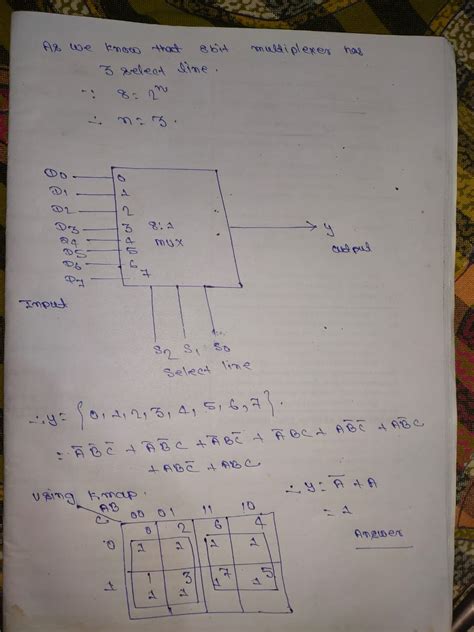 As we know that 8bit multiplexer has
3 select line.
∵ 8 = 2ⁿ
∴ n = 3.
D0 0
D1 1
D2 2
D3 3
D4 4
D5 5
D6 6
D7 7
8:1
MUX
y
output
Input
S2 S1 S0
Select line
∴ y = {0, 1, 2, 3, 4, 5, 6, 7}.
= A̅ B̅ C̅ + A̅ B̅ C + A̅ B C̅ + A̅ B C + A B̅ C̅ + A B̅ C
+ A B C̅ + ABC
Using K.map.
AB 00 01 11 10
C
0 2 6 4
0 1 1 1 1
1 3 7 5
1 1 1 1 1
∴ y = A̅ + A
= 1
Answer